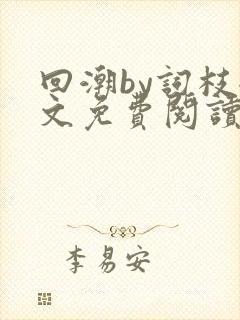 回潮by詞枝
文免費閱讀
李易安